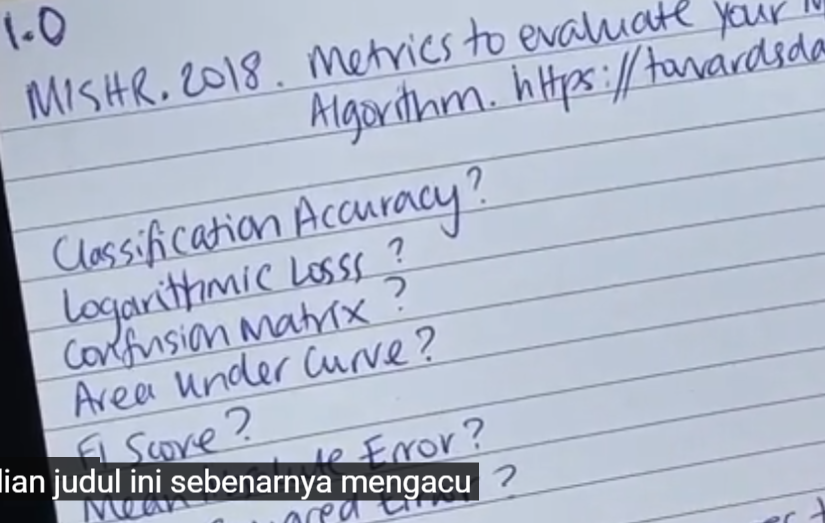 1.0
MISHR. 2018. Metrics to evaluate your
Algorithm. https://towardsda
Classification Accuracy?
Logarithmic Losss?
Confusion Matrix?
Area under Curve?
F1 Score?
Mean Error?
?
lian judul ini sebenarnya mengacu